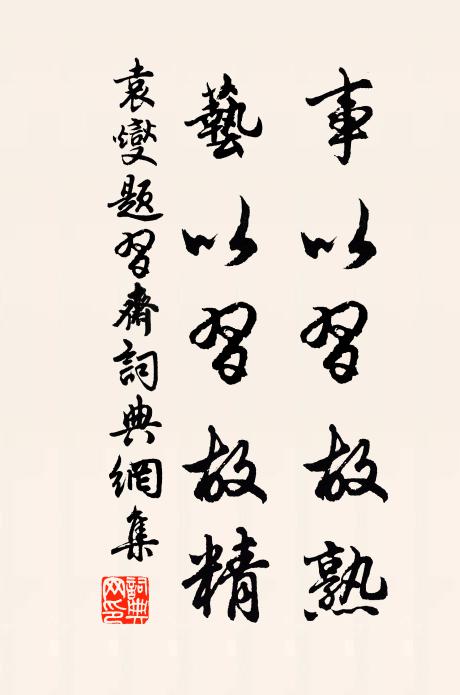 事以習故熟
藝以習故精
袁燮題習齋詞典網集
詞典网印